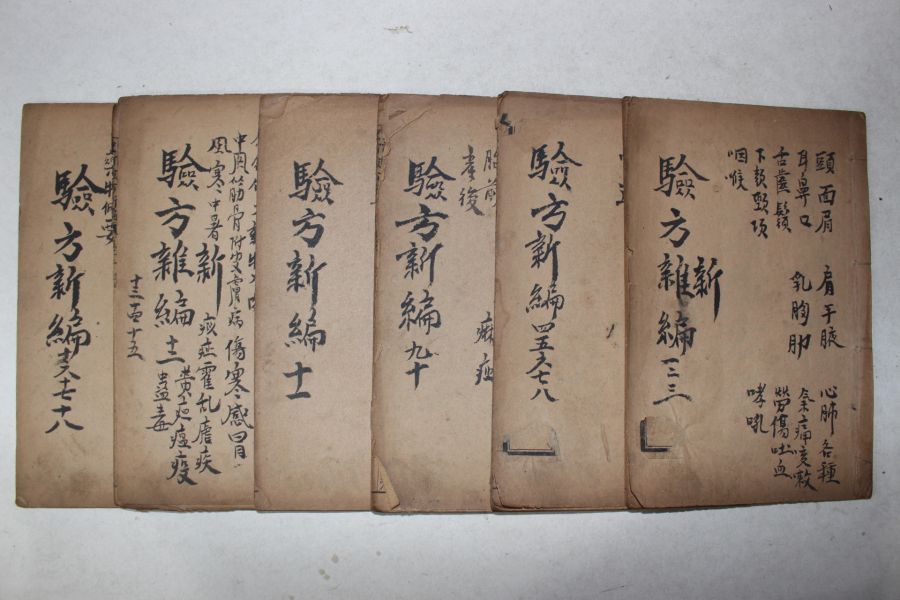 頭面眉 肩手腋 心肺各種
耳鼻口 乳胸肋 氣痛咳嗽
舌齒鬚 勞傷吐血
下頦頸項 哮吼
咽喉
新
驗方雜編一二三
驗方新編四五六七八
胎前
產後
驗方新編九十
麻痘
驗方新編十一
中風 筋骨 附皮膚病 傷寒感冒
風寒中暑 痰症霍乱瘧疾
新
黃疸瘟疫
驗方雜編十二 蠱毒
十三 十四 十五
驗方新編十六十七十八